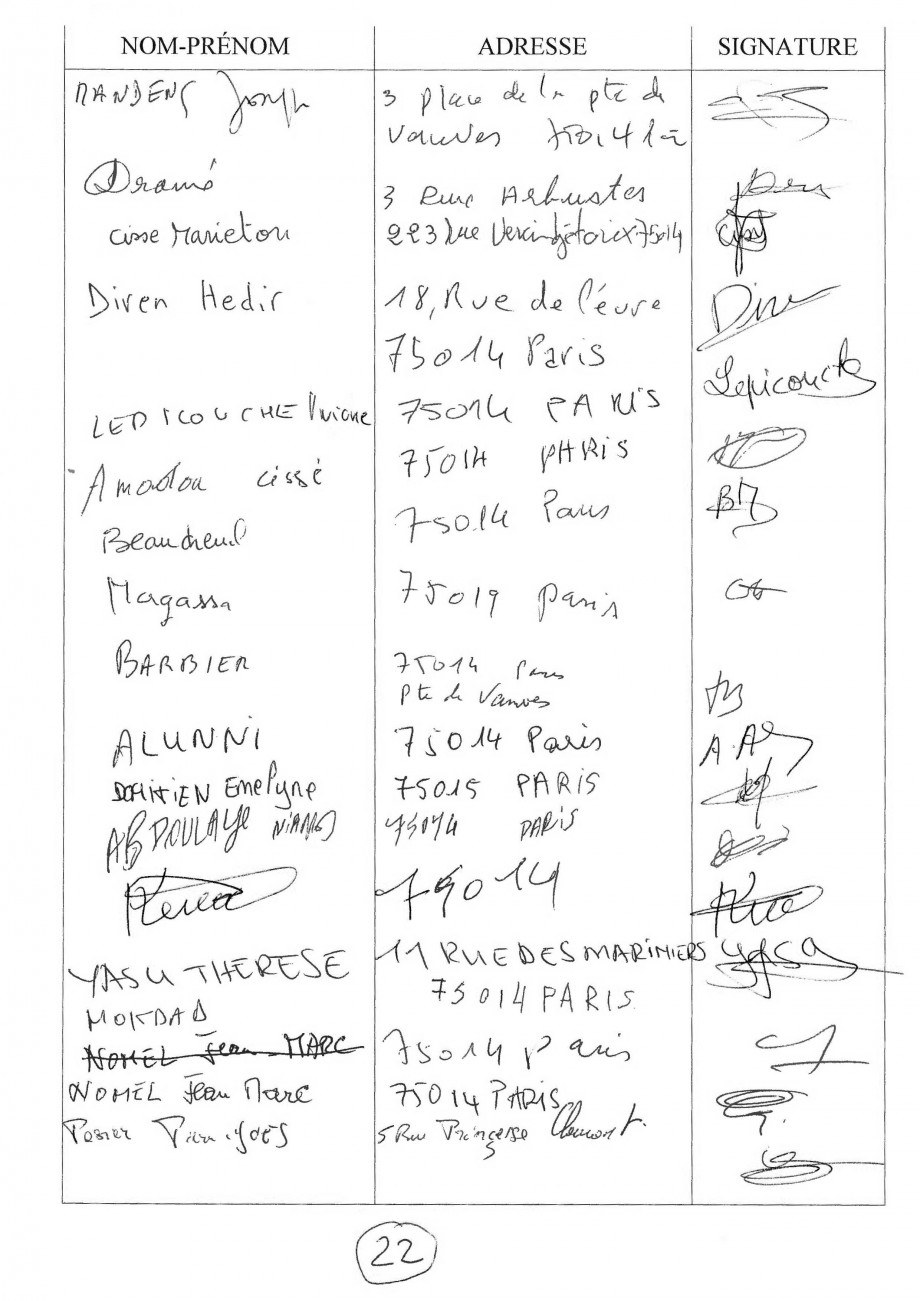 NOM-PRÉNOM ADRESSE SIGNATURE
MANDENG Joseph 3 place de la pte de
Vanves 75014
Dramé 3 Rue Arbustes
Cisse Marietou 223 Rue Vercingétorix 75014
Diren Hedir 18, Rue de l'évre
75014 Paris
75014 PARIS
Amadou cissé 75014 PARIS
Beaudreuil 75014 Paris
Magassa 75019 Paris
BARBIER 75014 Paris
Pte de Vanves
ALUNNI 75014 Paris A.A
Emelyne 75015 PARIS
ABDOULAYE NIANG 75014 PARIS
75014
YASU THERESE 11 RUE DES MARINIERS
75014 PARIS
MOKDAD
NOMEL Jean MARC 75014 Paris
NOMEL Jean Marc 75014 PARIS
5 Rue Princesse
22